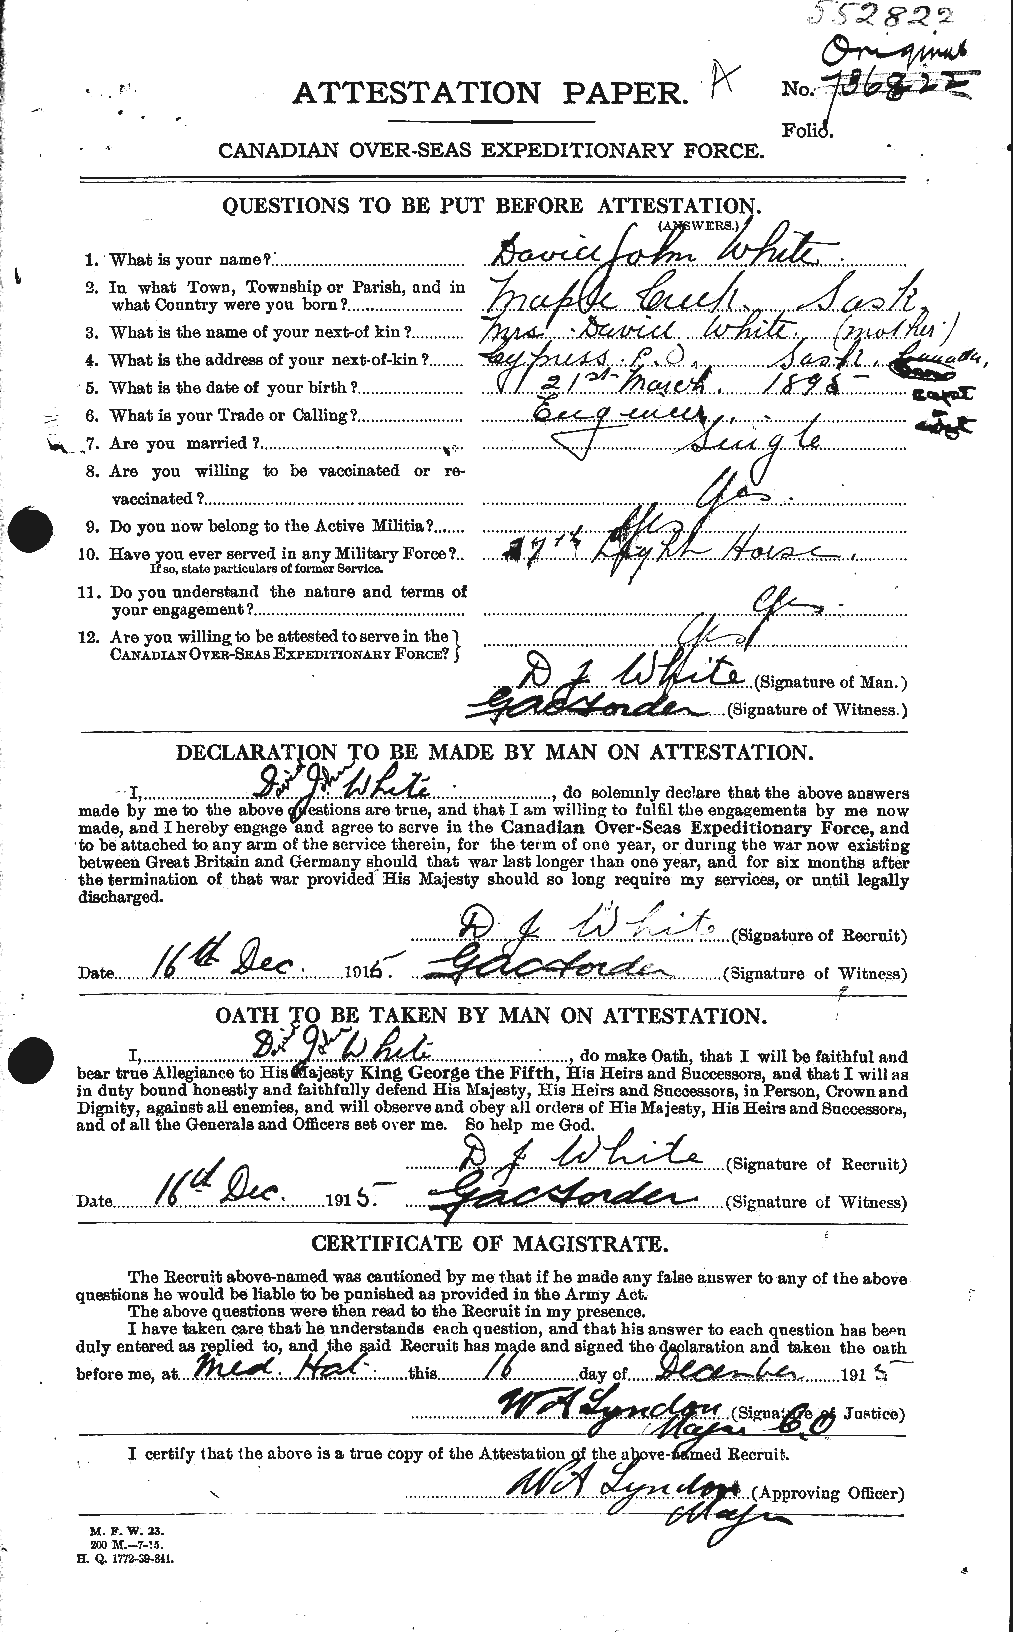 552822
Original
ATTESTATION PAPER. A
No. 736822
Folio.
CANADIAN OVER-SEAS EXPEDITIONARY FORCE.
QUESTIONS TO BE PUT BEFORE ATTESTATION.
(ANSWERS.)
1. What is your name? David John White
2. In what Town, Township or Parish, and in
what Country were you born? Maple Creek. Sask.
3. What is the name of your next-of kin? Mrs. David White. (mother)
4. What is the address of your next-of-kin? Cypress P.O. Sask. Canada,
5. What is the date of your birth? 21st March. 1895
6. What is your Trade or Calling? Engineer
7. Are you married? Single
8. Are you willing to be vaccinated or re-
vaccinated? Yes.
9. Do you now belong to the Active Militia? Yes
10. Have you ever served in any Military Force? 27th Light Horse.
If so, state particulars of former Service.
11. Do you understand the nature and terms of
your engagement? Yes
12. Are you willing to be attested to serve in the
CANADIAN OVER-SEAS EXPEDITIONARY FORCE? } Yes
D J White (Signature of Man.)
(Signature of Witness.)
DECLARATION TO BE MADE BY MAN ON ATTESTATION.
I, David John White, do solemnly declare that the above answers
made by me to the above questions are true, and that I am willing to fulfil the engagements by me now
made, and I hereby engage and agree to serve in the Canadian Over-Seas Expeditionary Force, and
to be attached to any arm of the service therein, for the term of one year, or during the war now existing
between Great Britain and Germany should that war last longer than one year, and for six months after
the termination of that war provided His Majesty should so long require my services, or until legally
discharged.
D J White (Signature of Recruit)
Date 16th Dec. 1915. (Signature of Witness)
OATH TO BE TAKEN BY MAN ON ATTESTATION.
I, David John White, do make Oath, that I will be faithful and
bear true Allegiance to His Majesty King George the Fifth, His Heirs and Successors, and that I will as
in duty bound honestly and faithfully defend His Majesty, His Heirs and Successors, in Person, Crown and
Dignity, against all enemies, and will observe and obey all orders of His Majesty, His Heirs and Successors,
and of all the Generals and Officers set over me. So help me God.
D J White (Signature of Recruit)
Date 16th Dec. 1915. (Signature of Witness)
CERTIFICATE OF MAGISTRATE.
The Recruit above-named was cautioned by me that if he made any false answer to any of the above
questions he would be liable to be punished as provided in the Army Act.
The above questions were then read to the Recruit in my presence.
I have taken care that he understands each question, and that his answer to each question has been
duly entered as replied to, and the said Recruit has made and signed the declaration and taken the oath
before me, at Med. Hat this 16 day of December 1915
W A Lyndon (Signature of Justice)
Major C.O
I certify that the above is a true copy of the Attestation of the above-named Recruit.
W A Lyndon (Approving Officer)
Major
M. F. W. 23.
200 M.—7-15.
H. Q. 1772-39-841.